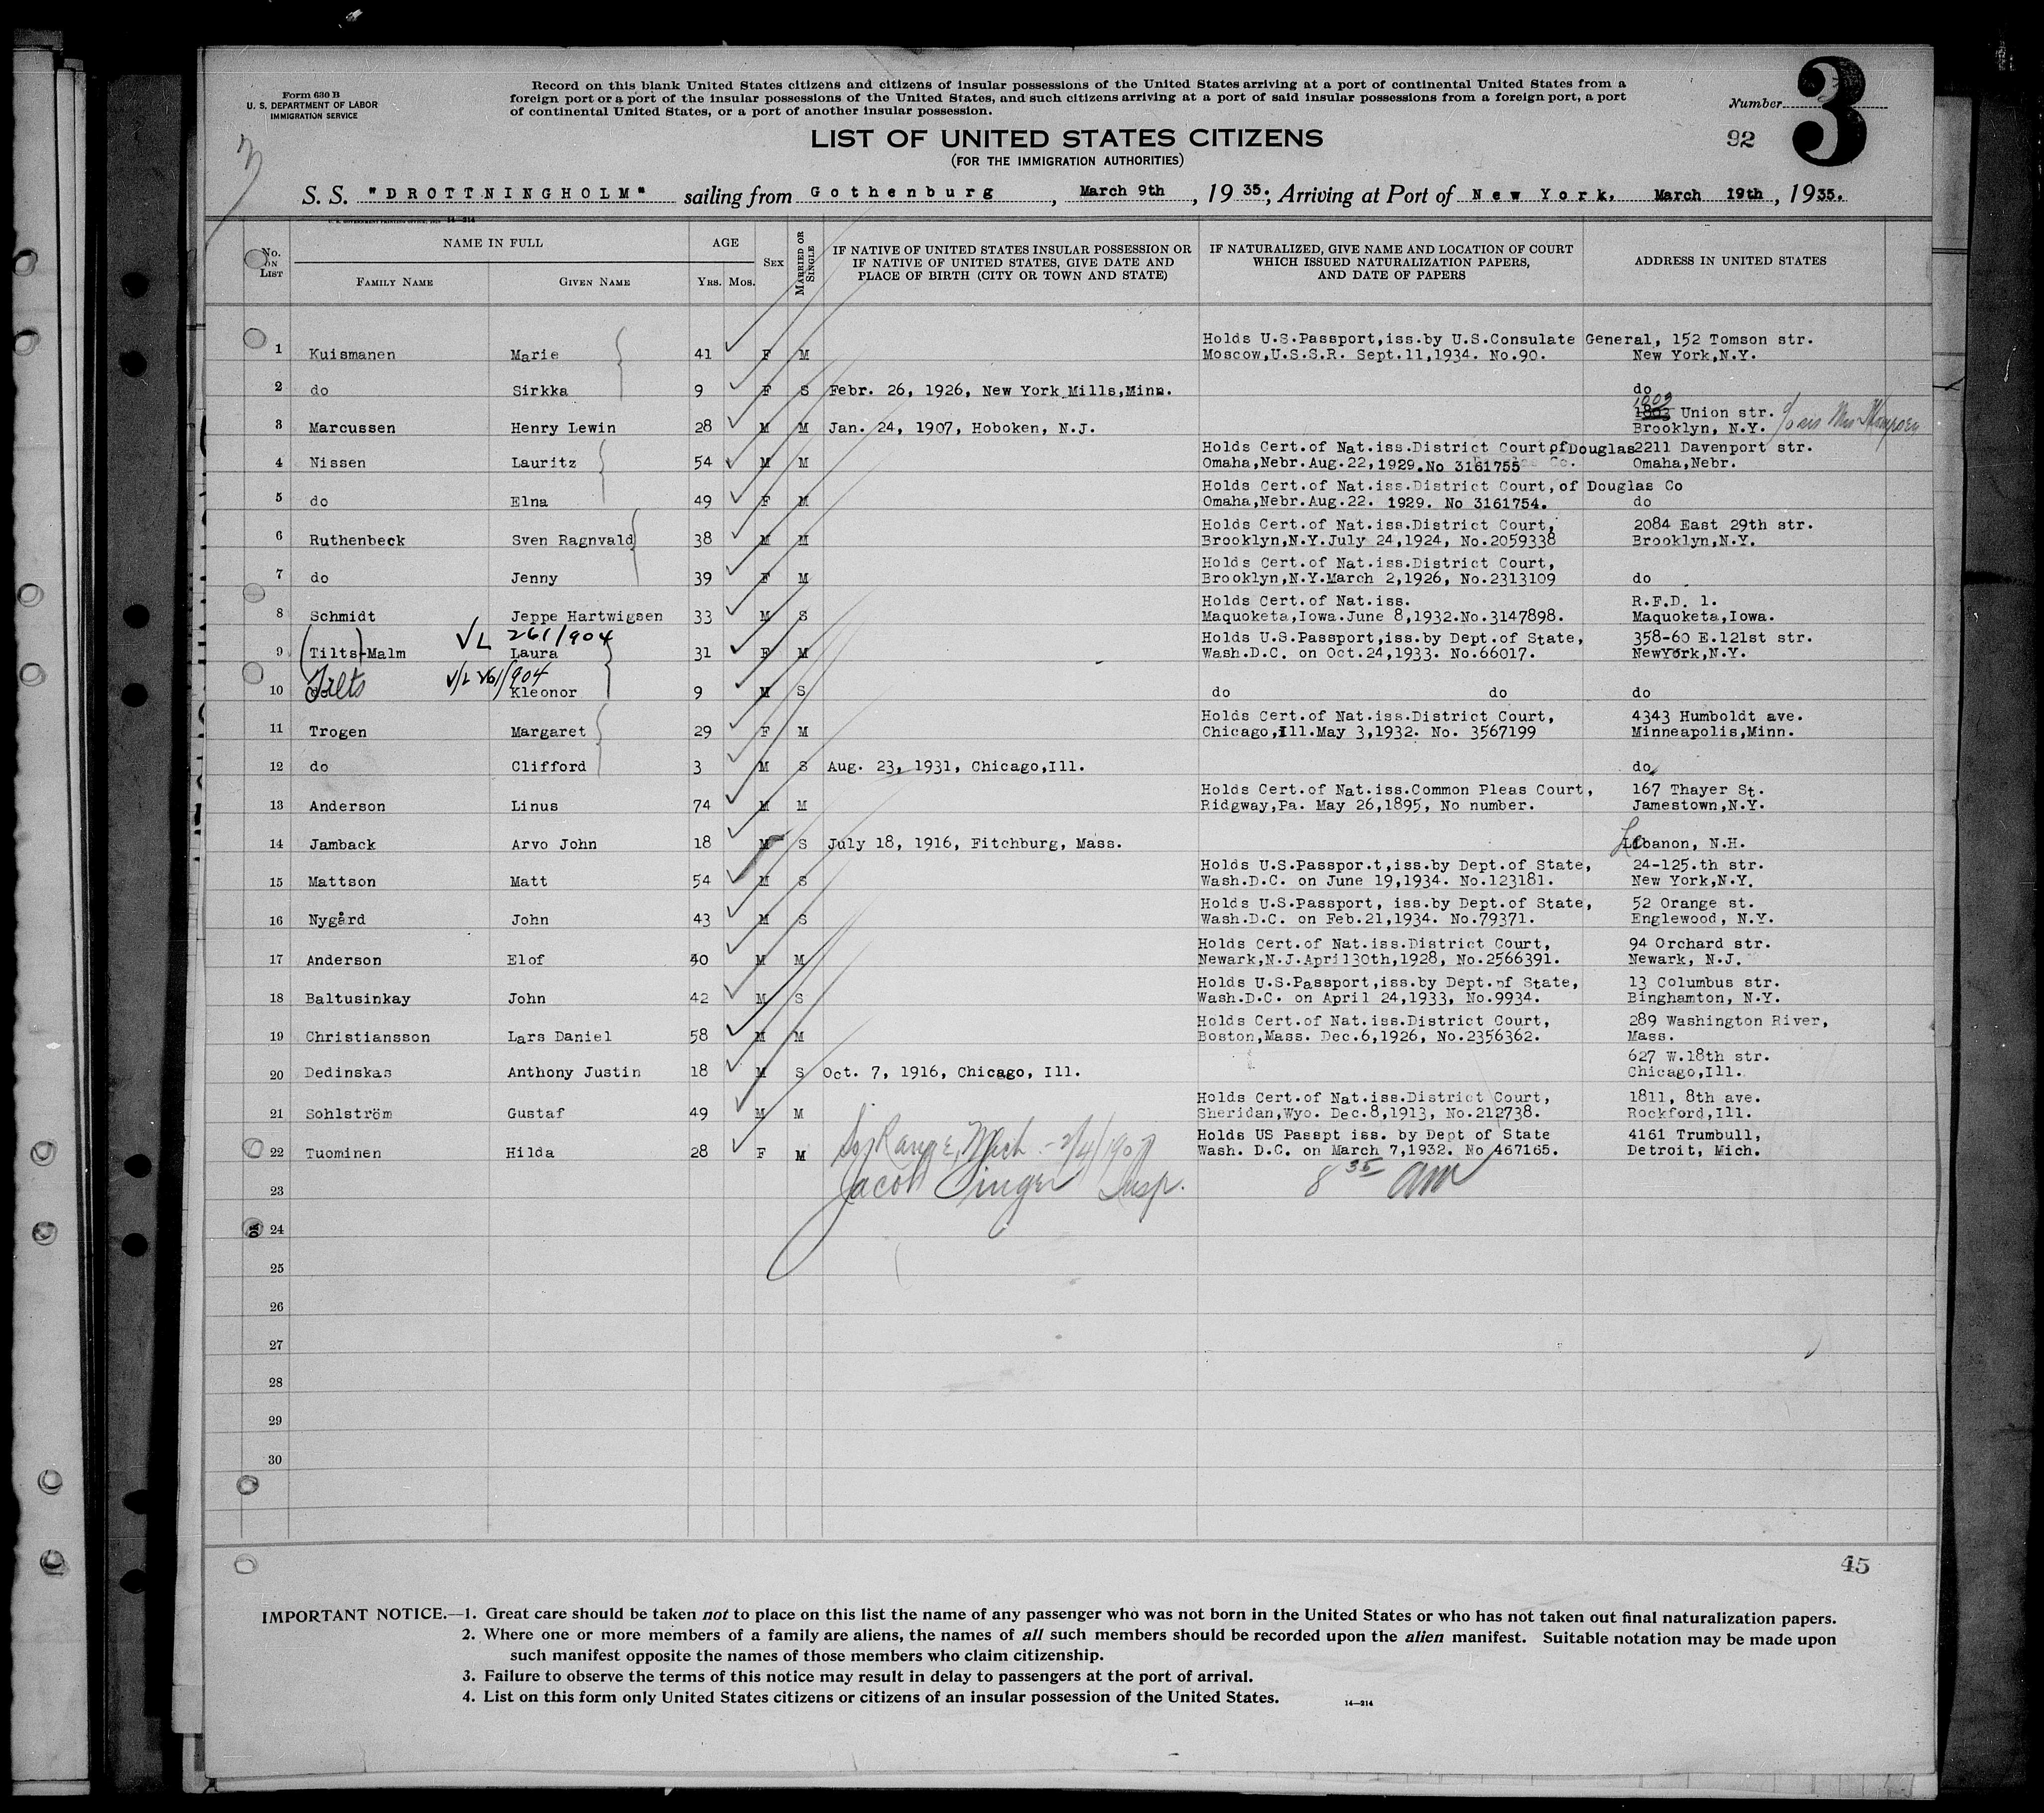 Form 630 B
U. S. DEPARTMENT OF LABOR
IMMIGRATION SERVICE
Record on this blank United States citizens and citizens of insular possessions of the United States arriving at a port of continental United States from a
foreign port or a port of the insular possessions of the United States, and such citizens arriving at a port of said insular possessions from a foreign port, a port
of continental United States, or a port of another insular possession.
Number 3
92
LIST OF UNITED STATES CITIZENS
(FOR THE IMMIGRATION AUTHORITIES)
S. S. "DROTTNINGHOLM" sailing from Gothenburg, March 9th, 1935; Arriving at Port of New York. March 19th, 1935.
U. S. GOVERNMENT PRINTING OFFICE: 1929 14—214
No. ON LIST NAME IN FULL AGE SEX MARRIED OR SINGLE IF NATIVE OF UNITED STATES INSULAR POSSESSION OR IF NATIVE OF UNITED STATES, GIVE DATE AND PLACE OF BIRTH (CITY OR TOWN AND STATE) IF NATURALIZED, GIVE NAME AND LOCATION OF COURT WHICH ISSUED NATURALIZATION PAPERS, AND DATE OF PAPERS ADDRESS IN UNITED STATES
FAMILY NAME GIVEN NAME YRS. MOS.
Holds U.S.Passport,iss.by U.S.Consulate General, 152 Tomson str.
1 Kuismanen Marie 41 F M Moscow,U.S.S.R. Sept.11,1934. No.90. New York,N.Y.
2 do Sirkka 9 F S Febr. 26, 1926, New York Mills,Minn. do
1009
1803 Union str.
3 Marcussen Henry Lewin 28 M M Jan. 24, 1907, Hoboken, N.J. Brooklyn, N.Y.
Holds Cert.of Nat.iss.District Court,of Douglas 2211 Davenport str.
4 Nissen Lauritz 54 M M Omaha,Nebr.Aug.22,1929.No 3161755 Co. Omaha,Nebr.
Holds Cert.of Nat.iss.District Court,of Douglas Co
5 do Elna 49 F M Omaha,Nebr.Aug.22. 1929. No 3161754. do
Holds Cert.of Nat.iss.District Court, 2084 East 29th str.
6 Ruthenbeck Sven Ragnvald 38 M M Brooklyn,N.Y.July 24,1924, No.2059338 Brooklyn,N.Y.
Holds Cert.of Nat.iss.District Court,
7 do Jenny 39 F M Brooklyn,N.Y.March 2,1926, No.2313109 do
Holds Cert.of Nat.iss. R.F.D. 1.
8 Schmidt Jeppe Hartwigsen 33 M S Maquoketa,Iowa.June 8,1932.No.3147898. Maquoketa,Iowa.
VL 261/904
Holds U.S.Passport,iss.by Dept.of State, 358-60 E.121st str.
9 (Tilts)-Malm Laura 31 F M Wash.D.C. on Oct.24,1933. No.66017. NewYork,N.Y.
V/L 261/904
10 Tilts Kleonor 9 M S do do do
Holds Cert.of Nat.iss.District Court, 4343 Humboldt ave.
11 Trogen Margaret 29 F M Chicago,Ill.May 3,1932. No. 3567199 Minneapolis,Minn.
12 do Clifford 3 M S Aug. 23, 1931, Chicago,Ill. do
Holds Cert.of Nat.iss.Common Pleas Court, 167 Thayer St.
13 Anderson Linus 74 M M Ridgway,Pa. May 26,1895, No number. Jamestown,N.Y.
14 Jamback Arvo John 18 M S July 18, 1916, Fitchburg, Mass. Lebanon, N.H.
Holds U.S.Passpor.t,iss.by Dept.of State, 24-125.th str.
15 Mattson Matt 54 M S Wash.D.C. on June 19,1934. No.123181. New York,N.Y.
Holds U.S.Passport, iss.by Dept.of State, 52 Orange st.
16 Nygård John 43 M S Wash.D.C. on Feb.21,1934. No.79371. Englewood, N.Y.
Holds Cert.of Nat.iss.District Court, 94 Orchard str.
17 Anderson Elof 40 M M Newark,N.J.April30th,1928, No.2566391. Newark, N.J.
Holds U.S.Passport,iss.by Dept.of State, 13 Columbus str.
18 Baltusinkay John 42 M S Wash.D.C. on April 24,1933, No.9934. Binghamton, N.Y.
Holds Cert.of Nat.iss.District Court, 289 Washington River,
19 Christiansson Lars Daniel 58 M M Boston,Mass. Dec.6,1926, No.2356362. Mass.
627 W.18th str.
20 Dedinskas Anthony Justin 18 M S Oct. 7, 1916, Chicago, Ill. Chicago,Ill.
Holds Cert.of Nat.iss.District Court, 1811, 8th ave.
21 Sohlström Gustaf 49 M M Sheridan,Wyo. Dec.8,1913, No.212738. Rockford,Ill.
Holds US Passpt iss. by Dept of State 4161 Trumbull,
22 Tuominen Hilda 28 F M So Range, Mich. - 2/4/1907 Wash. D.C. on March 7,1932. No 467165. Detroit, Mich.
23 Jacob Singer Insp. 8 35 am
24
25
26
27
28
29
30
45
IMPORTANT NOTICE.—1. Great care should be taken not to place on this list the name of any passenger who was not born in the United States or who has not taken out final naturalization papers.
2. Where one or more members of a family are aliens, the names of all such members should be recorded upon the alien manifest. Suitable notation may be made upon
such manifest opposite the names of those members who claim citizenship.
3. Failure to observe the terms of this notice may result in delay to passengers at the port of arrival.
4. List on this form only United States citizens or citizens of an insular possession of the United States.
14—214